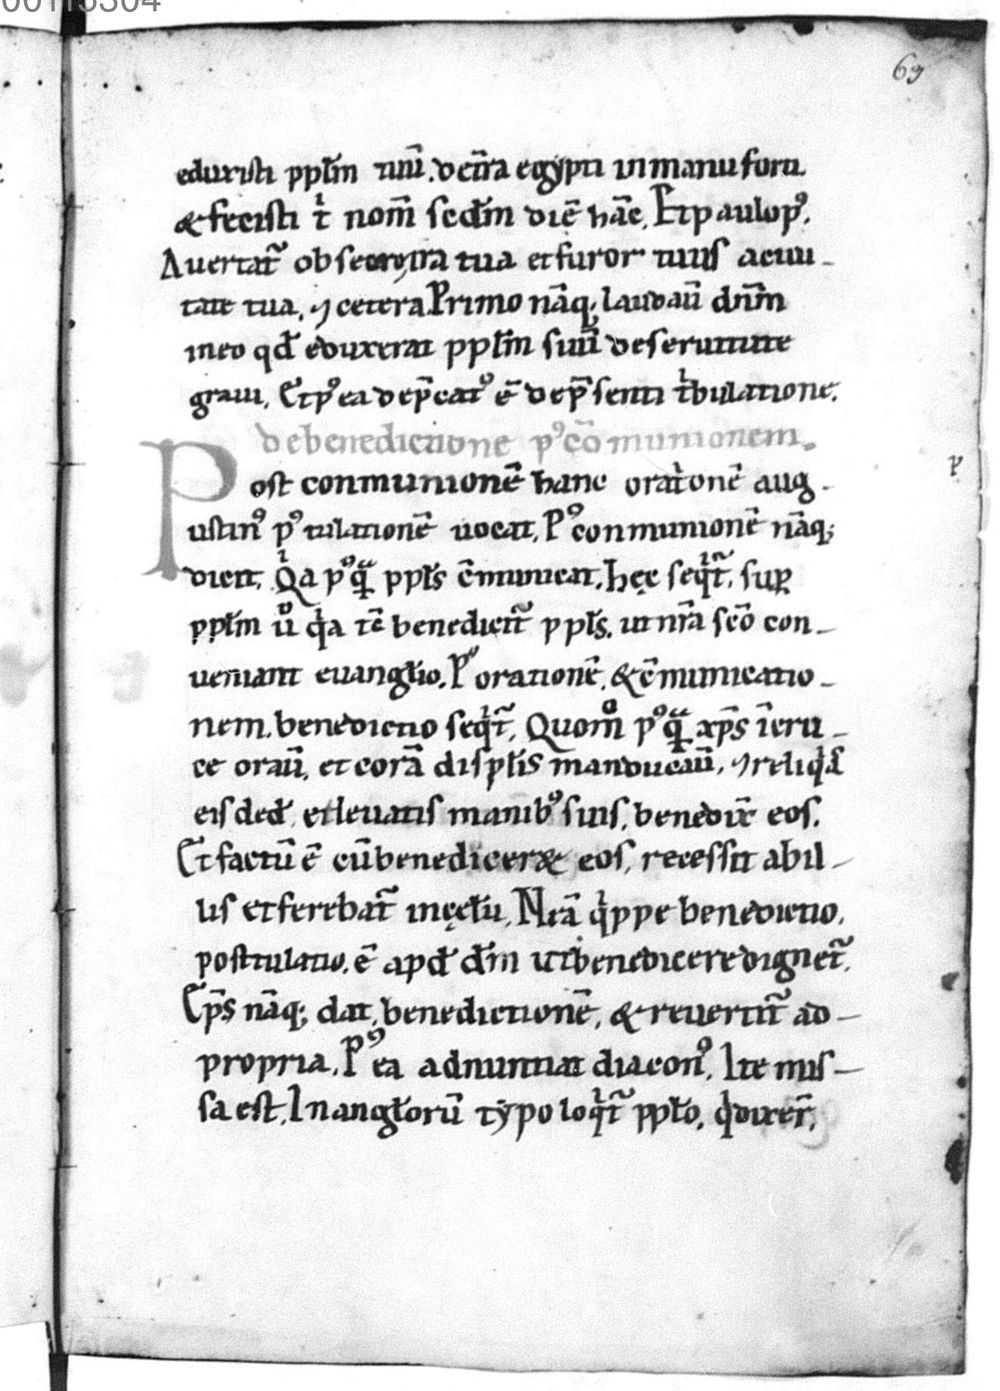 00113304
69
eduxisti pplm̄ tuū. de t̄ra egypti in manu forti.
& fecisti t̓ nom̄ secdm̄ diē hāc. Et paulo pꝰ.
Auertat̄ obsecro ira tua et furor tuus a ciui-
tate tua, ⁊ cetera. Primo nāq; laudaū dnm̄
in eo qđ eduxerat pplm̄ suū de seruitute
graui. Et pꝰ ea dep̄catꝰ ē de p̄senti t̓bulatione.
de benedictione pꝰ cōmunionem.
Post conmunionē hanc orat̓onē aug-
ustinꝰ pꝰtulationē uocat. Pꝰ conmunionē nāq;
dicit. Q̓a pꝰqᷓ ppls̄ c̄municat. hęc seq̓t̄. suꝑ
pplm̄ uͦ q̓a tc̄ benedicit̄ ppls̄. ut nr̄a scō con-
ueniant euanglio. Pꝰ orationē. & c̄municatio-
nem. benedictio seq̓t̄. Quom̊ pꝰqᷓ xp̄s īcru-
ce oraū. et corā displis̄ manducaū. ⁊ reliq̓s
eis ded̄. et leuatis manibꝰ suis. benedix̄ eos.
Et factū ē cū benedicer& eos, recessit ab il-
lis et ferebat̄ in cęlū. Nr̄ā q̓ppe benedictio.
postulatio. ē apđ dm̄ ut benedicere dignet̄.
Ep̄s nāq; dat benedictionē. & reuertit̄ ad
propria. Pꝰ ea adnuntiat diaconꝰ. Ite mis-
sa est. In anglorū typo loq̓t̄ pplo. q̓ dixer̄.
p